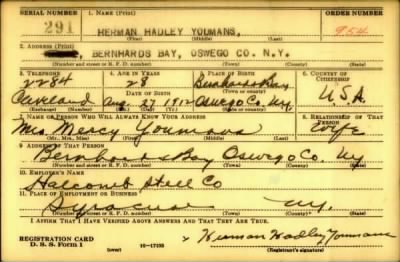 SERIAL NUMBER 1. NAME (Print) ORDER NUMBER
291 HERMAN HADLEY YOUMANS, 954
(First) (Middle) (Last)
2. ADDRESS (Print)
BERNHARDS BAY, OSWEGO CO. N.Y.
(Number and street or R. F. D. number) (Town) (County) (State)
3. TELEPHONE 4. AGE IN YEARS 5. PLACE OF BIRTH 6. COUNTRY OF CITIZENSHIP
2284 28 Bernhards Bay
DATE OF BIRTH
Cleveland Aug 27 1912 Oswego Co. Ny. U.S.A.
(Exchange) (Mo.) (Day) (Yr.) (State or country)
7. NAME OF PERSON WHO WILL ALWAYS KNOW YOUR ADDRESS 8. RELATIONSHIP OF THAT PERSON
Mrs. Mercy Youmans Wife
(Mr., Mrs., Miss) (First) (Middle) (Last)
9. ADDRESS OF THAT PERSON
Bernhards Bay Oswego Co. Ny
(Number and street or R. F. D. number) (Town) (County) (State)
10. EMPLOYER'S NAME
Halcomb Steel Co
11. PLACE OF EMPLOYMENT OR BUSINESS
Syracuse Ny.
(Number and street or R. F. D. number) (Town) (County) (State)
I AFFIRM THAT I HAVE VERIFIED ABOVE ANSWERS AND THAT THEY ARE TRUE.
REGISTRATION CARD
D. S. S. Form 1 (over) 16—17105 Herman Hadley Youmans